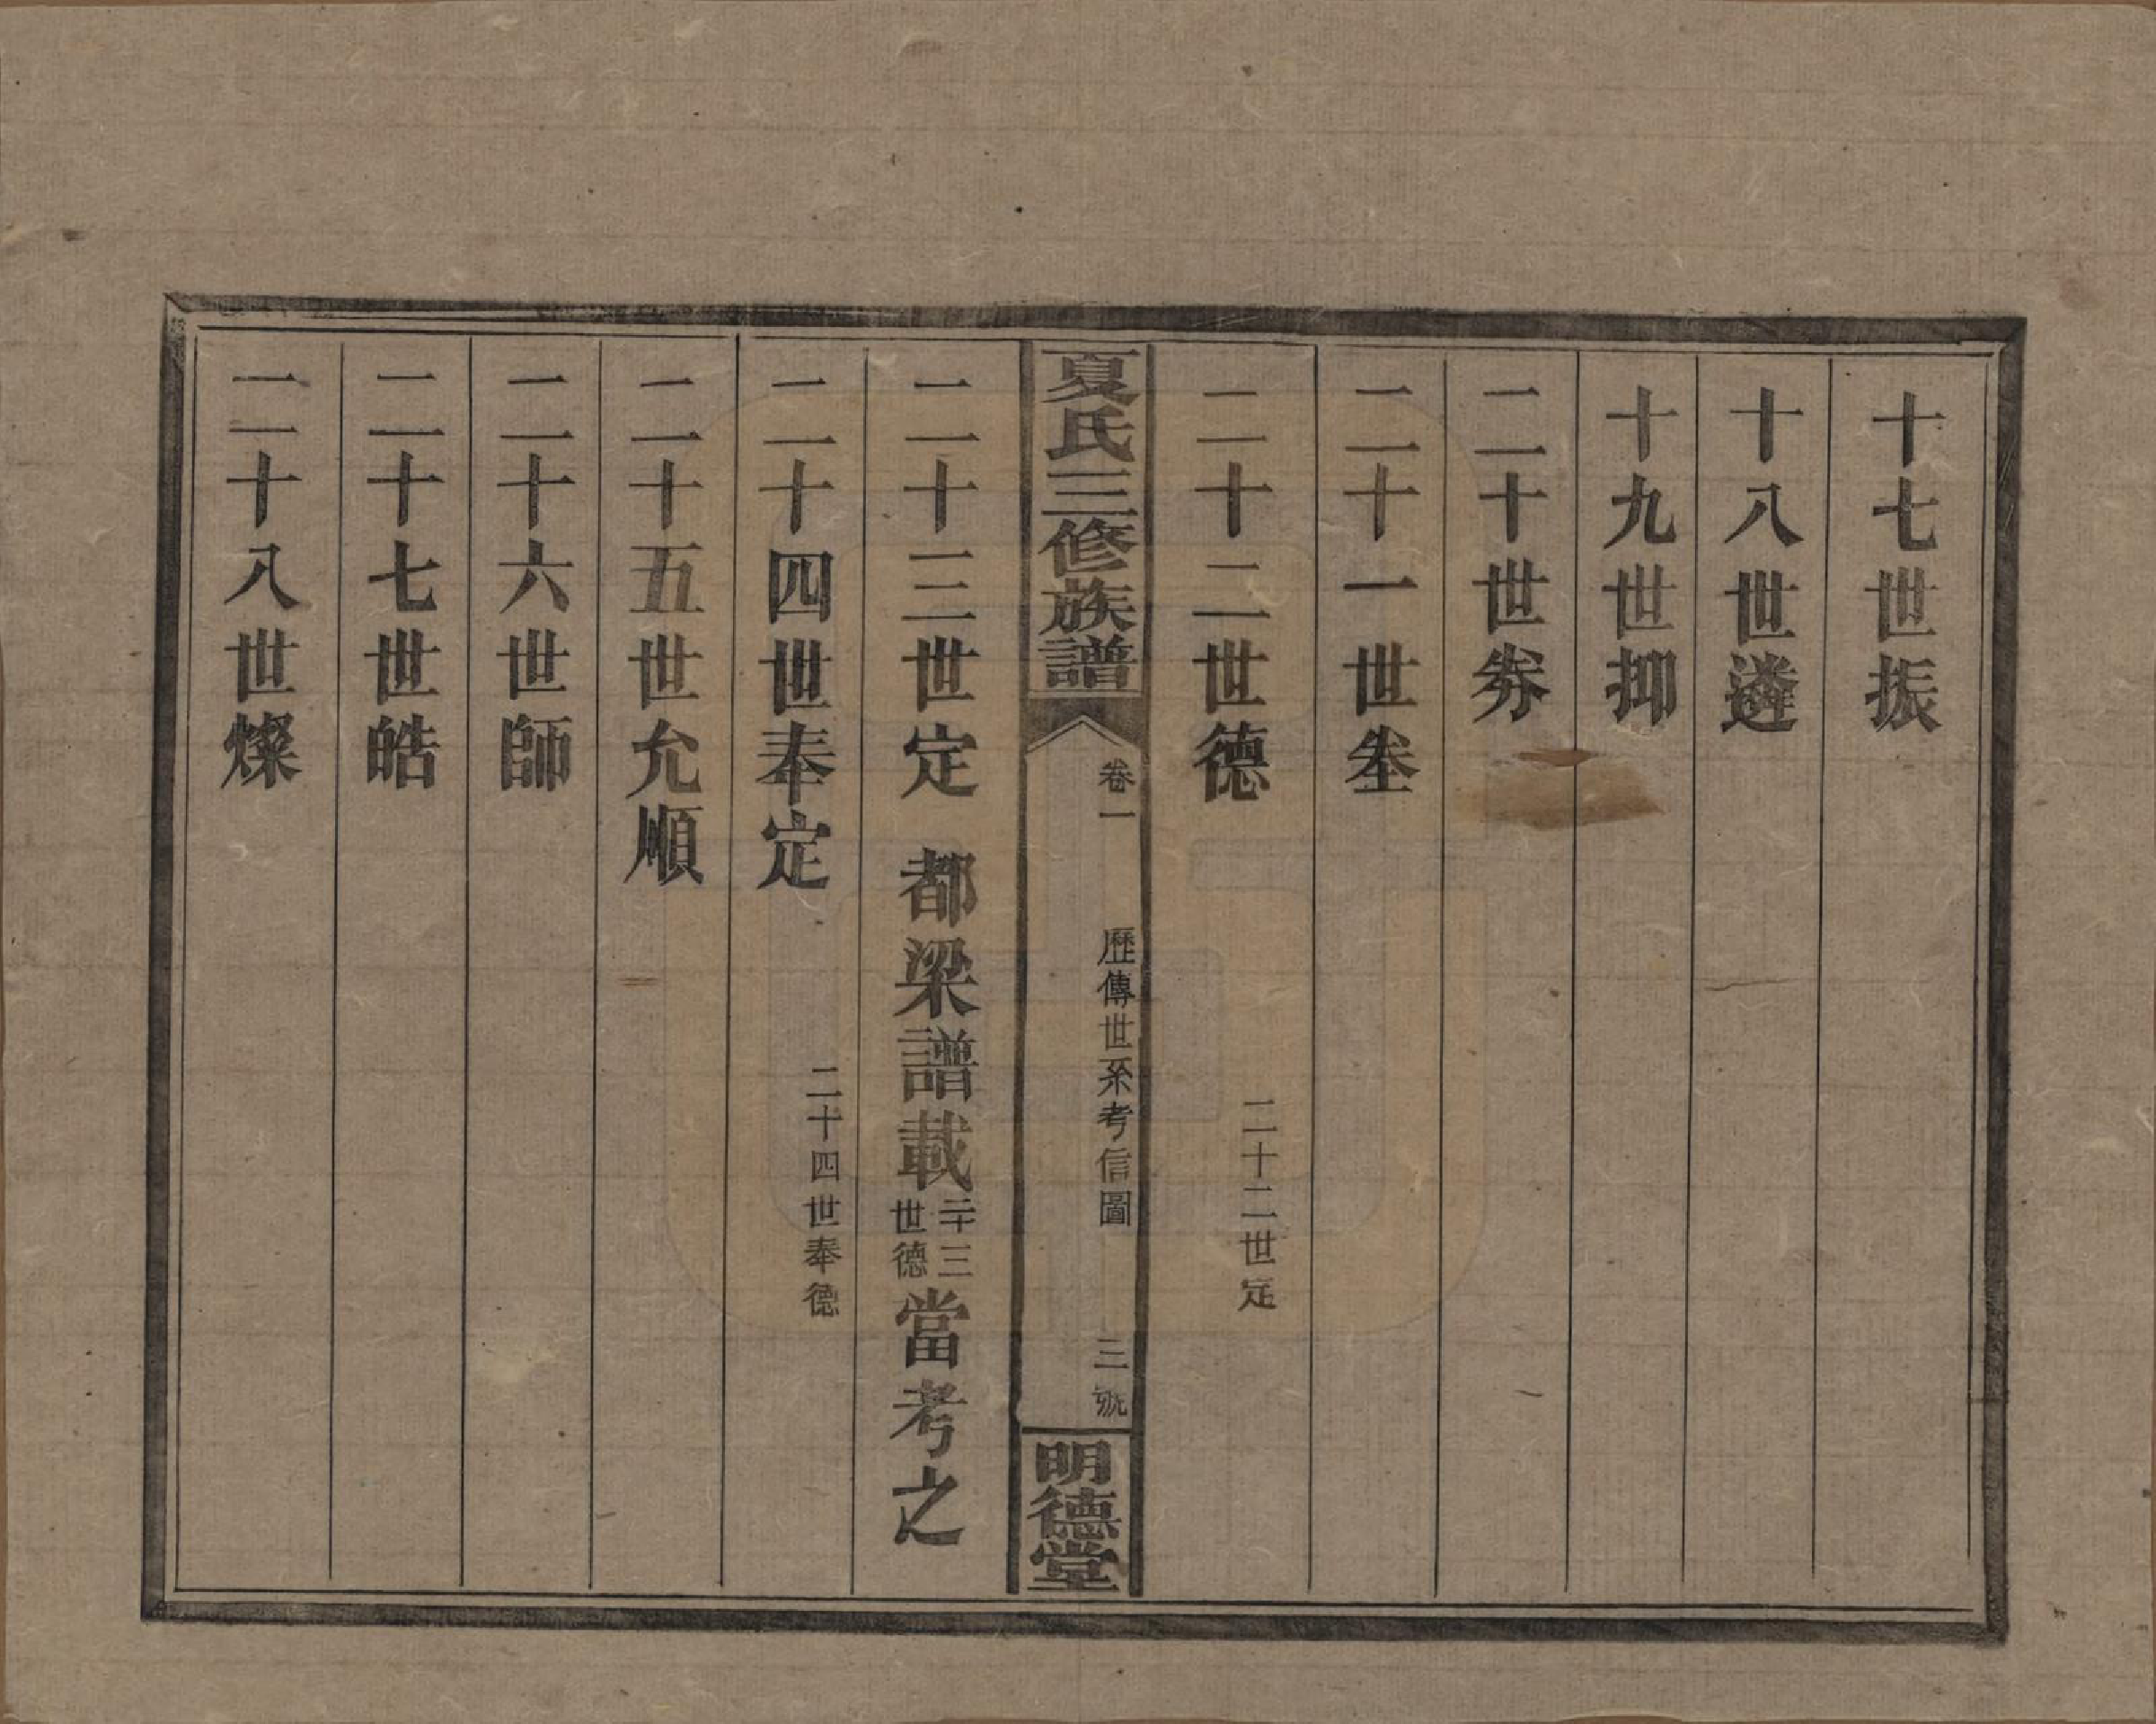 十七世振
十八世遴
十九世抑
二十世劵
二十一世埢
二十二世德
二十二世定
夏氏三修族譜
卷一
歷傳世系考信圖
三號
明德堂
二十三世定　都梁譜載二十三世德當考之
二十四世奉定
二十四世奉德
二十五世允順
二十六世師
二十七世皓
二十八世燦